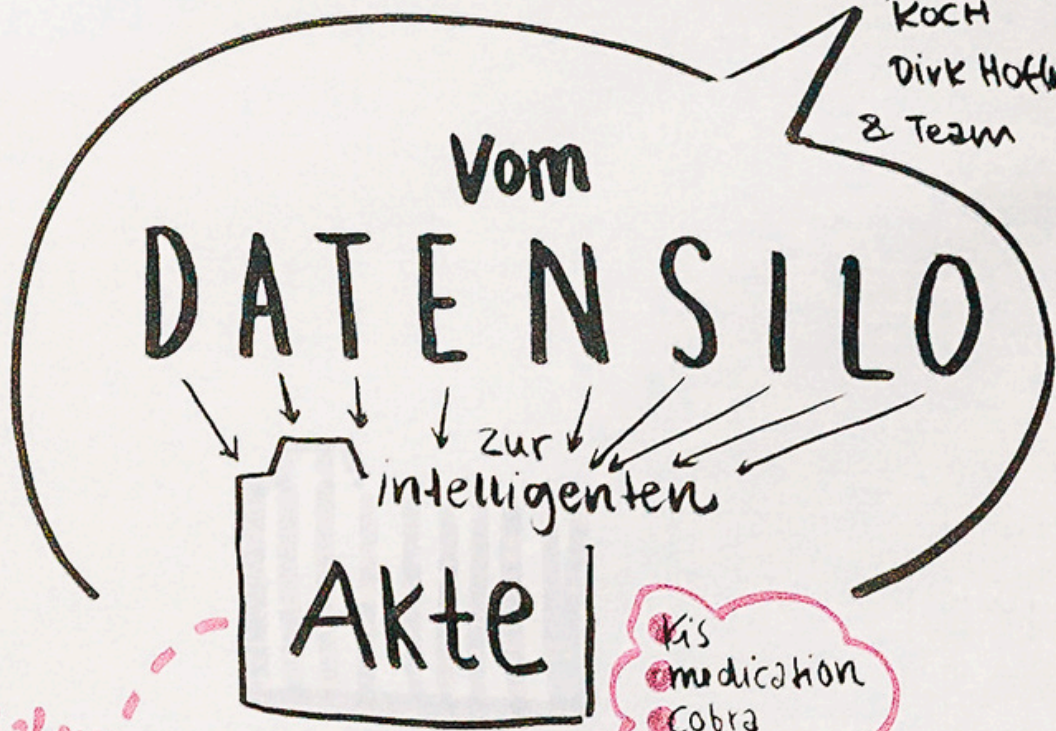 KOCH
Dirk
& Team
Vom
DATENSILO
zur
intelligenten
Akte
Kis
medication
Cobra